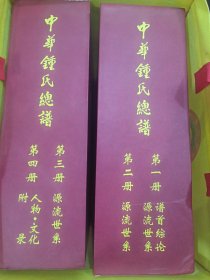 中华鍾氏總譜
第三册 源流世系
第四册 人物·文化
附录
中华鍾氏總譜
第一册 谱首综论
源流世系
第二册 源流世系